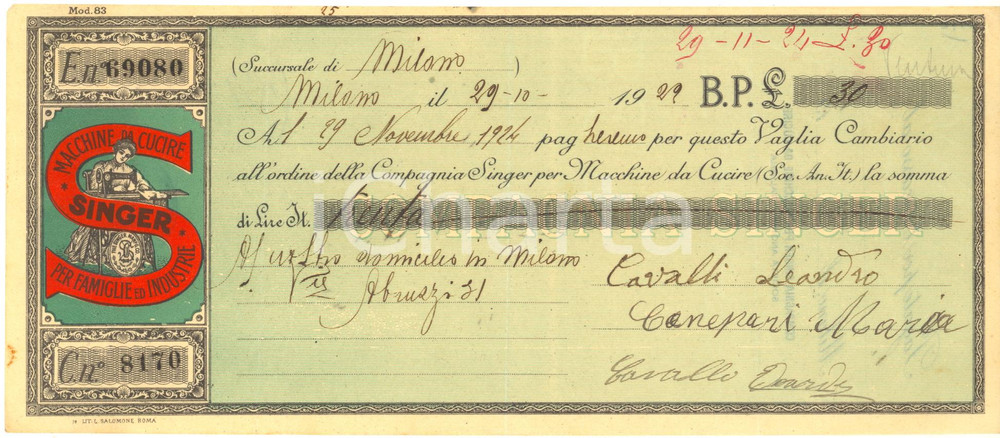 Mod. 83
25
E.nº 69080
29-11-24 £. 30
(Succursale di Milano)
Milano il 29-10- 1922 B.P.£. 30
Al 29 Novembre 1924 pagheremo per questo Vaglia Cambiario
all'ordine della Compagnia Singer per Macchine da Cucire (Soc. An. It.) la somma
di Lire It. trenta
COMPAGNIA SINGER
MACCHINE DA CUCIRE
SINGER
PER FAMIGLIE ED INDUSTRIE
domicilio in Milano
Via Abruzzi 31
Cavalli Leandro
Canepari Maria
Cavalli
C.nº 8170
LIT. L. SALOMONE ROMA
iCharta